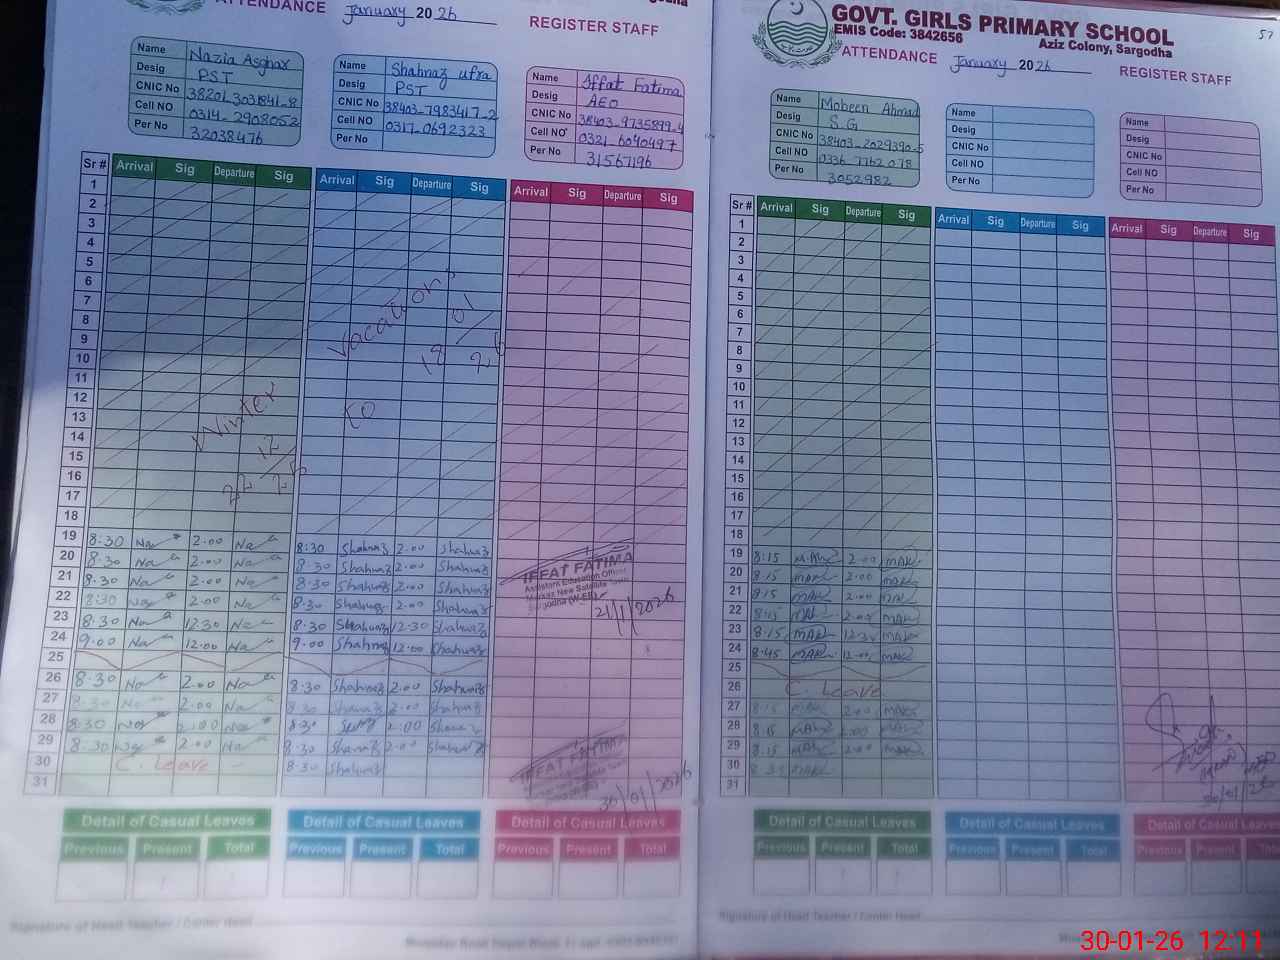 ATTENDANCE January 2026 REGISTER STAFF
Name Nazia Asghar
Desig PST
CNIC No 38201-3031841-8
Cell NO 0314-2908052
Per No 32038476
Name Shahnaz ufra
Desig PST
CNIC No 38403-7983417-2
Cell NO 0317-0692323
Per No
Name Iffat Fatima
Desig AEO
CNIC No 38403-9735899-4
Cell NO 0321-6040497
Per No 31567196
Sr # Arrival Sig Departure Sig Arrival Sig Departure Sig Arrival Sig Departure Sig
1
2
3
4
5
6
7
8
9
10
11
12
13
14
15
16
17
18
Winter Vacation
22/12/25 to 18/01/26
19 8:30 Na 2.00 Na 8:30 Shahnaz 2.00 Shahnaz
20 8.30 Na 2.00 Na 8.30 Shahnaz 2.00 Shahnaz
21 8.30 Na 2.00 Na 8.30 Shahnaz 2.00 Shahnaz
22 8:30 Na 2.00 Na 8.30 Shahnaz 2.00 Shahnaz
23 8.30 Na 12.30 Na 8.30 Shahnaz 12.30 Shahnaz
24 9.00 Na 12.00 Na 9.00 Shahnaz 12.00 Shahnaz
25
26 8.30 Na 2.00 Na 8.30 Shahnaz 2.00 Shahnaz
27 8.30 Na 2.00 Na 8.30 Shahnaz 2.00 Shahnaz
28 8:30 Na 2:00 Na 8.30 2:00
29 8.30 Na 2.00 Na 8.30 Shahnaz 2.00 Shahnaz
30 C. Leave 8.30 Shahnaz
31
IFFAT FATIMA
Assistant Education Officer
Markaz New Satellite Town
Sargodha (W-EE)
21/1/2026
IFFAT FATIMA
30/01/2026
Detail of Casual Leaves Detail of Casual Leaves Detail of Casual Leaves
Previous Present Total Previous Present Total Previous Present Total
Signature of Head Teacher / Center Head
GOVT. GIRLS PRIMARY SCHOOL
EMIS Code: 3842656 Aziz Colony, Sargodha
57
ATTENDANCE January 2026 REGISTER STAFF
Name Mobeen Ahmad
Desig S.G
CNIC No 38403-2029390-5
Cell NO 0336-7762078
Per No 3052982
Name
Desig
CNIC No
Cell NO
Per No
Name
Desig
CNIC No
Cell NO
Per No
Sr # Arrival Sig Departure Sig Arrival Sig Departure Sig Arrival Sig Departure Sig
1
2
3
4
5
6
7
8
9
10
11
12
13
14
15
16
17
18
19 8:15 2.00
20 8.15 2.00
21 8.15 2.00
22 8:15 2.00
23 8.15 12.30
24 8.45 12.00
25
26 C. Leave
27 8.15 2.00
28 8.15 2.00
29 8.15 2.00
30 8.35
31
30/01/26
Detail of Casual Leaves Detail of Casual Leaves Detail of Casual Leaves
Previous Present Total Previous Present Total Previous Present Total
Signature of Head Teacher / Center Head
30-01-26 12:11